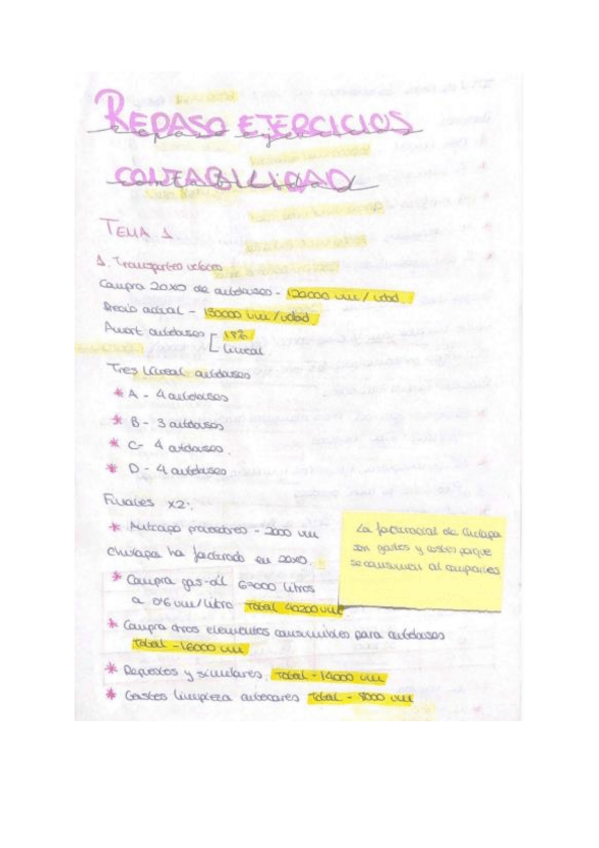 REPASO EJERCICIOS
CONTABILIDAD
TEMA 1.
1. Transportes
Compra 20X0 de autobuses - 120000 um / udad.
Precio actual - 150000 um / udad
Amort autobuses 18%
Lineal
Tres Lineal autobuses
* A - 4 autobuses
* B - 3 autobuses
* C - 4 autobuses.
* D - 4 autobuses
Finales X2:
* proveedores - 2000 um
ha facturado en 20X0.
* Compra gas-oil 67000 litros
a 0'6 um / litro Total 40200 um
* Compra otros elementos consumibles para autobuses
Total - 16000 um
* Repuestos y similares. Total - 14000 um
* Gastos limpieza autocares Total - 8000 um
La de
son gastos y costes porque
se consumen al